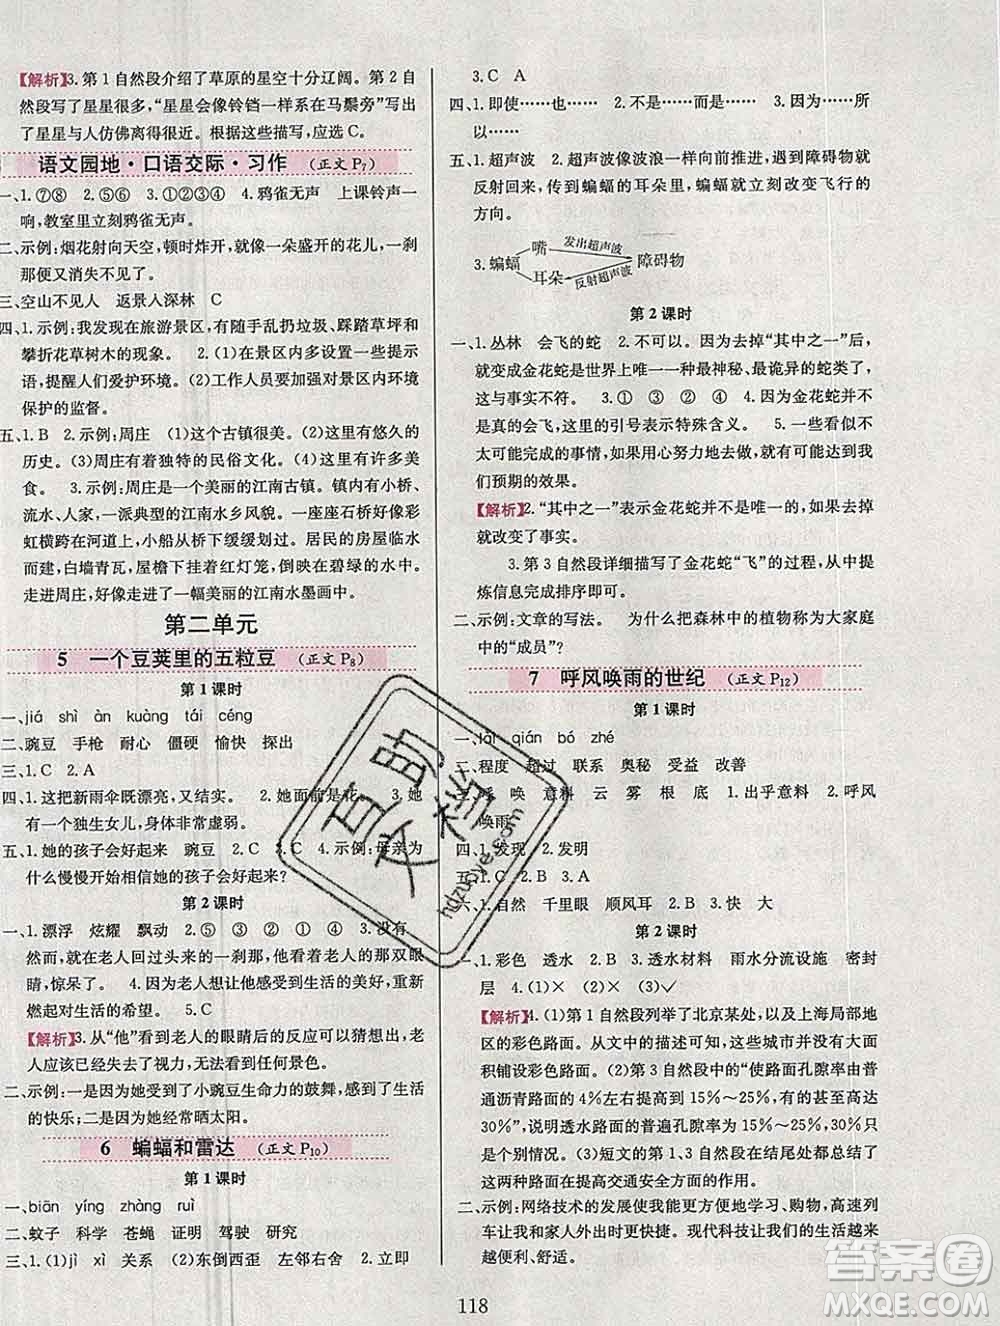 【解析】3. 第 1 自然段介绍了草原的星空十分辽阔。第 2 自
然段写了星星很多、“星星会像铃铛一样系在马鬃旁”写出
了星星与人仿佛离得很近。根据这些描写，应选 C。
语文园地·口语交际·习作 (正文 P7)
一、1. ⑦⑧ 2. ⑤⑥ 3. ①②③④ 4. 鸦雀无声 上课铃声一
响，教室里立刻鸦雀无声。
二、示例：烟花射向天空，顿时炸开，就像一朵盛开的花儿，一刹
那那便又消失不见了。
三、空山不见人 返景入深林 C
四、1. 示例：我发现在旅游景区，有随手乱扔垃圾、踩踏草坪和
攀折花草树木的现象。 2. (1)在景区内多设置一些提示
语，提醒人们爱护环境。(2)工作人员要加强对景区内环境
保护的监督。
五、1. B 2. 示例：周庄 (1)这个古镇很美。(2)这里有悠久的
历史。(3)周庄有着独特的民俗文化。(4)这里有许多美
食。 3. 示例：周庄是一个美丽的江南古镇。镇内有小桥、
流水、人家，一派典型的江南水乡风貌。一座座石桥好似彩
虹横跨在河道上，小船从桥下缓缓划过。居民的房屋临水
而建，白墙青瓦，屋檐下挂着红灯笼，倒映在碧绿的水中，真
美啊！周庄就是一幅美丽的江南水墨画中。
第二单元
5 一个豆荚里的五粒豆 (正文 P8)
第 1 课时
一、jiá shì àn kuàng tái céng
二、豌豆 手枪 耐心 僵硬 愉快 探出
三、1. C 2. A
四、1. 这把新雨伞既漂亮，又结实。 2. 她面前是花。 3. 她
有一个独生女儿，身体非常虚弱。
五、1. 她的孩子会好起来 豌豆 2. C 3. C 4. 示例：母亲为
什么慢慢开始相信她的孩子会好起来？
第 2 课时
一、1. 漂浮 炫耀 飘动 2. ⑤ ③ ② ① ④ 3. 没有，
然而，就在老人回过头来的一刹那，他看见老人的那双眼
睛，惊呆了。 4. 因为这个老人想让他感受到生活的美好，重新
燃起对生活的希望。 5. C
【解析】3. 从“他”看到老人的眼睛后的反应可以猜测，老
人应该已经失去了视力，无法欣赏任何景色。
二、示例：一是因为她受到了小豌豆生命力的鼓舞，感到了生活
的快乐；二是因为她经常晒太阳。
6 蝙蝠和雷达 (正文 P10)
第 1 课时
一、biān yíng zhàng ruì
二、蚊子 科学 苍蝇 证明 驾驶 研究
三、1. (1)jì xì 关系 (2)东倒西歪 左邻右舍 2. 立即
3. C A
四、1. 即使……也…… 2. 不是……而是…… 3. 因为……所
以……
五、1. 超声波 2. 超声波像波浪一样向前推进，遇到障碍物就
反射回来，传到蝙蝠的耳朵里，蝙蝠就立刻改变飞行的
方向。
3. 蝙蝠 嘴 发出超声波 障碍物
耳朵 反射超声波
第 2 课时
一、1. 丛林 会飞的蛇 2. 不可以。因为去掉“其中之一”后，
就变成金花蛇是世界上唯一一种最神秘、最诡异的蛇类了，
这与事实不符。 3. ① ③ ② ④ 4. 因为金花蛇并不
是真的会飞，所以这里的引号表示特殊含义。 5. 一些看似不
太可能完成的事情，如果用心努力地去做，也能达到我
们预期的效果。
【解析】2. “其中之一”表示金花蛇并不是唯一的，去掉
就改变了事实。
3. 第 3 自然段详细描写了金花蛇“飞”的过程，从中提
炼信息完成排序即可。
二、示例：文章的写法。 为什么把森林中的植物称为大家庭
中的“成员”？
7 呼风唤雨的世纪 (正文 P12)
第 1 课时
一、lài qián bó zhé
二、程度 超过 联系 奥秘 受益 改善
三、呼 唤 意料 云 雾 根 底 1. 出乎意料 2. 呼风
唤雨
四、1. 发现 2. 发明
五、1. C 2. B 3. A
六、1. 自然 千里眼 顺风耳 2. B 3. 快 大
第 2 课时
一、1. 彩色 透水 2. B 3. 透水材料 雨水分流设施 密封
层 4. (1)× (2)× (3)✓
【解析】4. (1)第 1 自然段列举了北京某处，以及上海局部地
区的彩色路面。从文中的描述可知，这些城市并没有大面
积铺设彩色路面。(2)第 3 自然段中的“使路面孔隙率由普
通沥青路面的 4%左右提高到 15%～25%，有的甚至高达
30%”，说明透水路面的普遍孔隙率为 15%～25%，而不是
30%。(3)短文的第 1、3 自然段在结尾处都分别写出了
这两种路面在提高交通安全方面的作用。
二、示例：网络技术的发展使我能更方便地学习、购物，高速列
车让我和家人外出时更快捷。现代科技让我们的生活越来
越便利、舒适。
118
互助文档
hdzuoye.com
答案圈
MXQE.COM